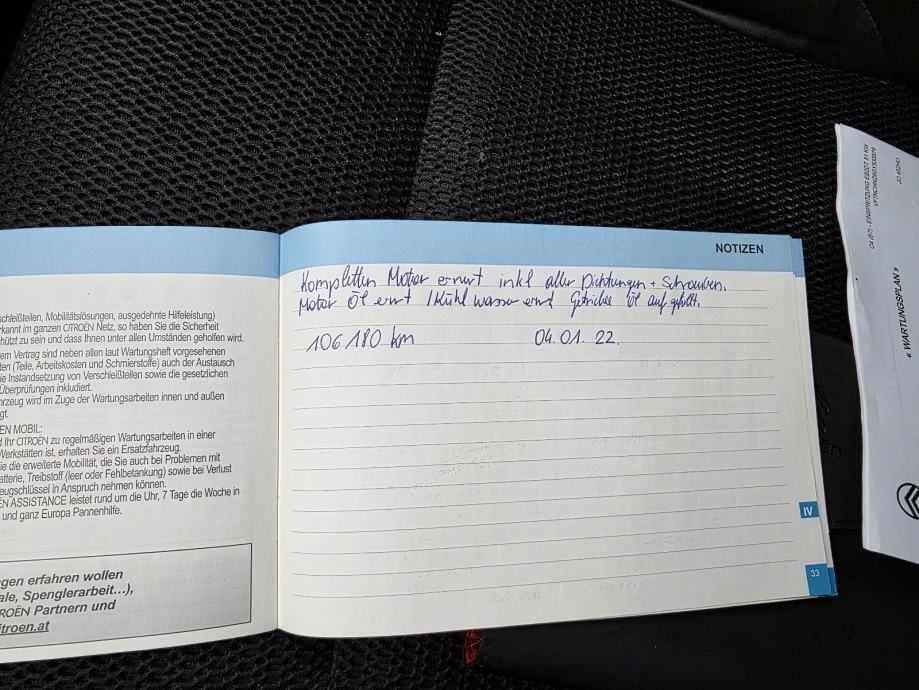 schleißteilen, Mobilitätslösungen, ausgedehnte Hilfeleistung)
rkannt im ganzen CITROËN Netz, so haben Sie die Sicherheit
chützt zu sein und dass Ihnen unter allen Umständen geholfen wird.
em Vertrag sind neben allen laut Wartungsheft vorgesehenen
ten (Teile, Arbeitskosten und Schmierstoffe) auch der Austausch
ie Instandsetzung von Verschleißteilen sowie die gesetzlichen
Überprüfungen inkludiert.
hrzeug wird im Zuge der Wartungsarbeiten innen und außen
gt.
EN MOBIL:
d Ihr CITROËN zu regelmäßigen Wartungsarbeiten in einer
Werkstätten ist, erhalten Sie ein Ersatzfahrzeug.
ie die erweiterte Mobilität, die Sie auch bei Problemen mit
atterie, Treibstoff (leer oder Fehlbetankung) sowie bei Verlust
eugschlüssel in Anspruch nehmen können.
EN ASSISTANCE leistet rund um die Uhr, 7 Tage die Woche in
und ganz Europa Pannenhilfe.
gen erfahren wollen
ale, Spenglerarbeit...),
ROËN Partnern und
itroen.at
NOTIZEN
Kompletten Motor ernert inkl aller Dichtungen + Schrauben.
Motor Öl ernt / Kühlwasser ernt Getriebe Öl aufgefüllt.
106 180 km 04.01.22.
IV
33
C4 (B7) - EINSPRITZUNG EB2DT 81 KW
« WARTUNGSPLAN »